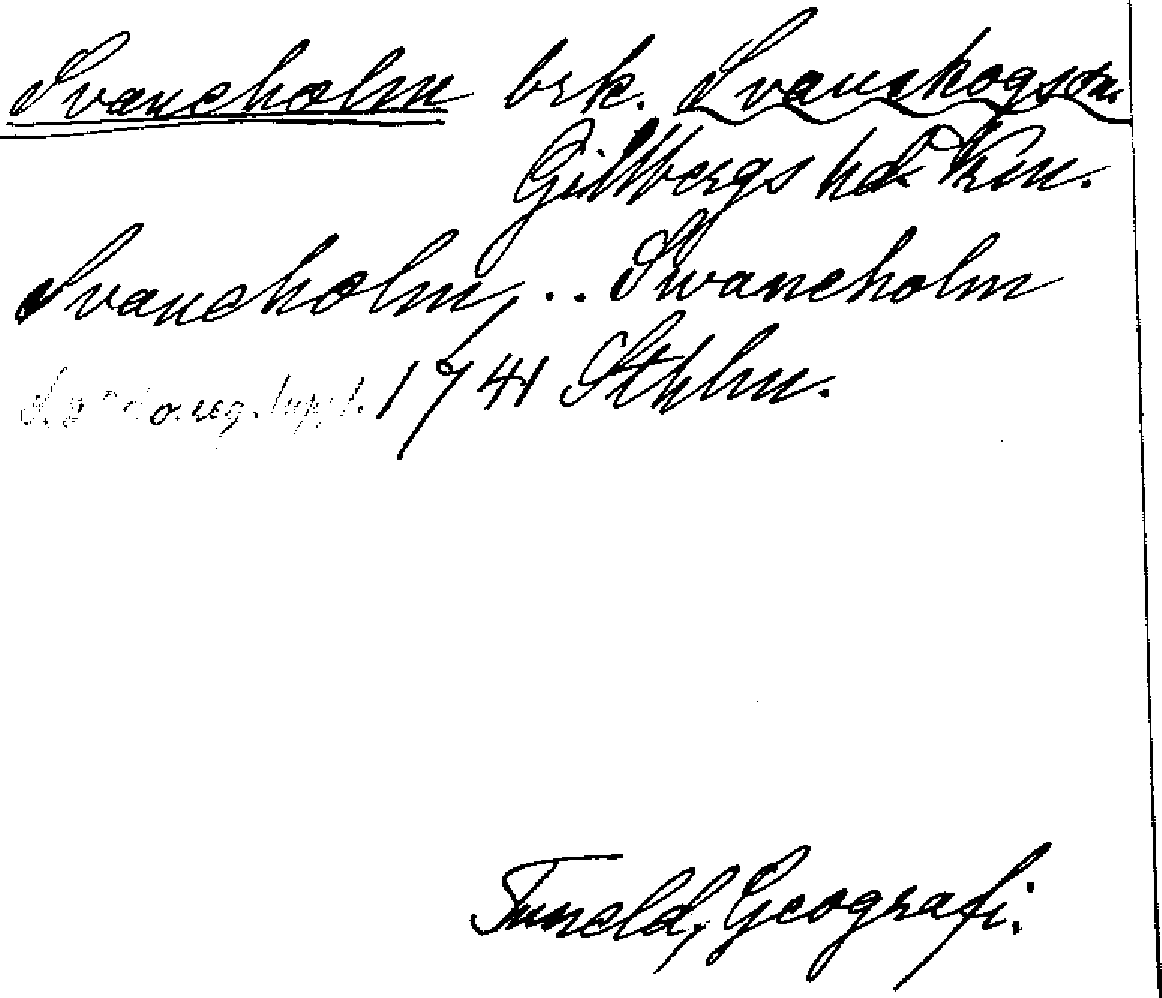 Svaneholm brk. Svanskogs sn.
Gillbergs hd. Vrm.
Svaneholm, .. Swaneholm
1741 Sthlm.
Tuneld, Geografi.